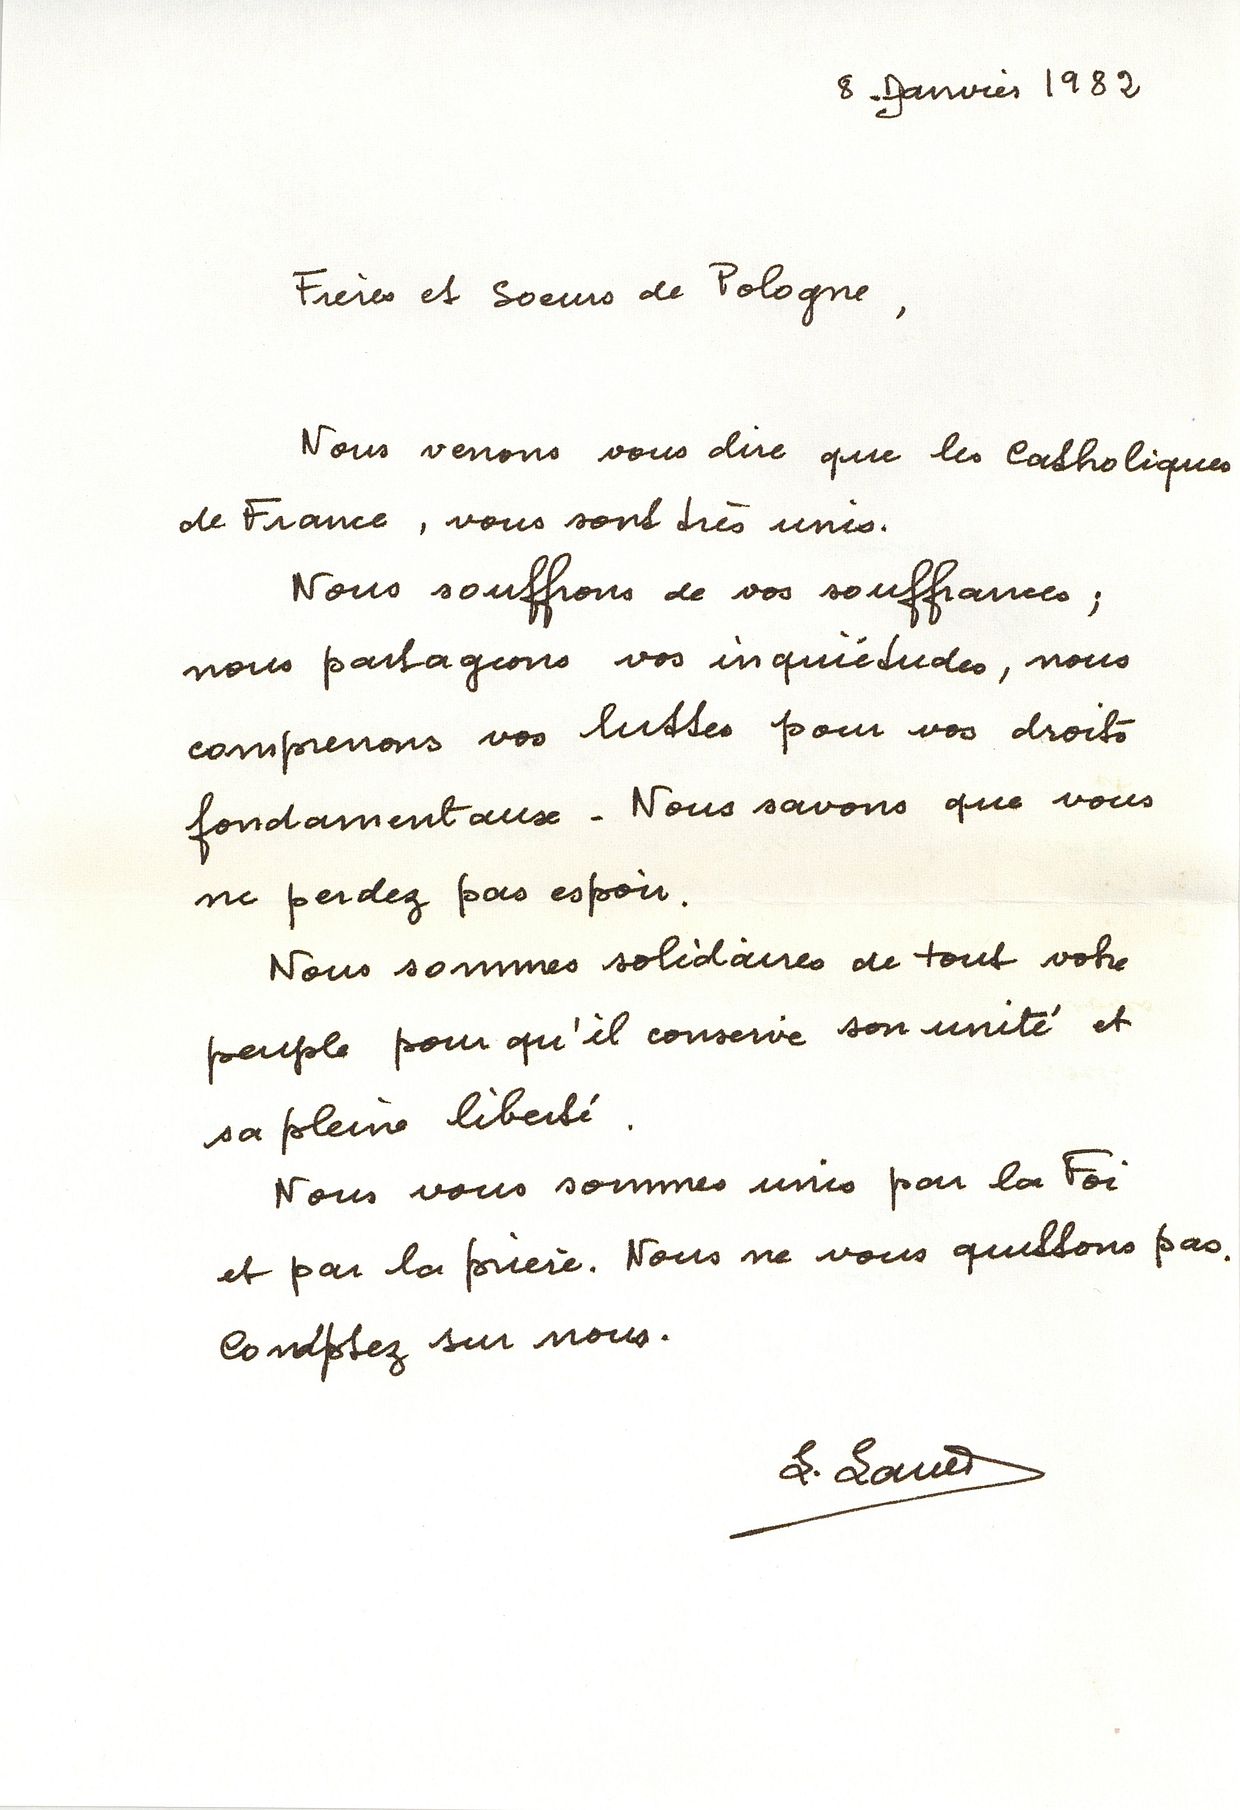 8 Janvier 1982
Frères et Soeurs de Pologne,
Nous venons vous dire que les Catholiques
de France, vous sont très unis.
Nous souffrons de vos souffrances ;
nous partageons vos inquiétudes, nous
comprenons vos luttes pour vos droits
fondamentaux - Nous savons que vous
ne perdez pas espoir.
Nous sommes solidaires de tout votre
peuple pour qu'il conserve son unité et
sa pleine liberté.
Nous vous sommes unis par la Foi
et par la prière. Nous ne vous quittons pas.
Comptez sur nous.